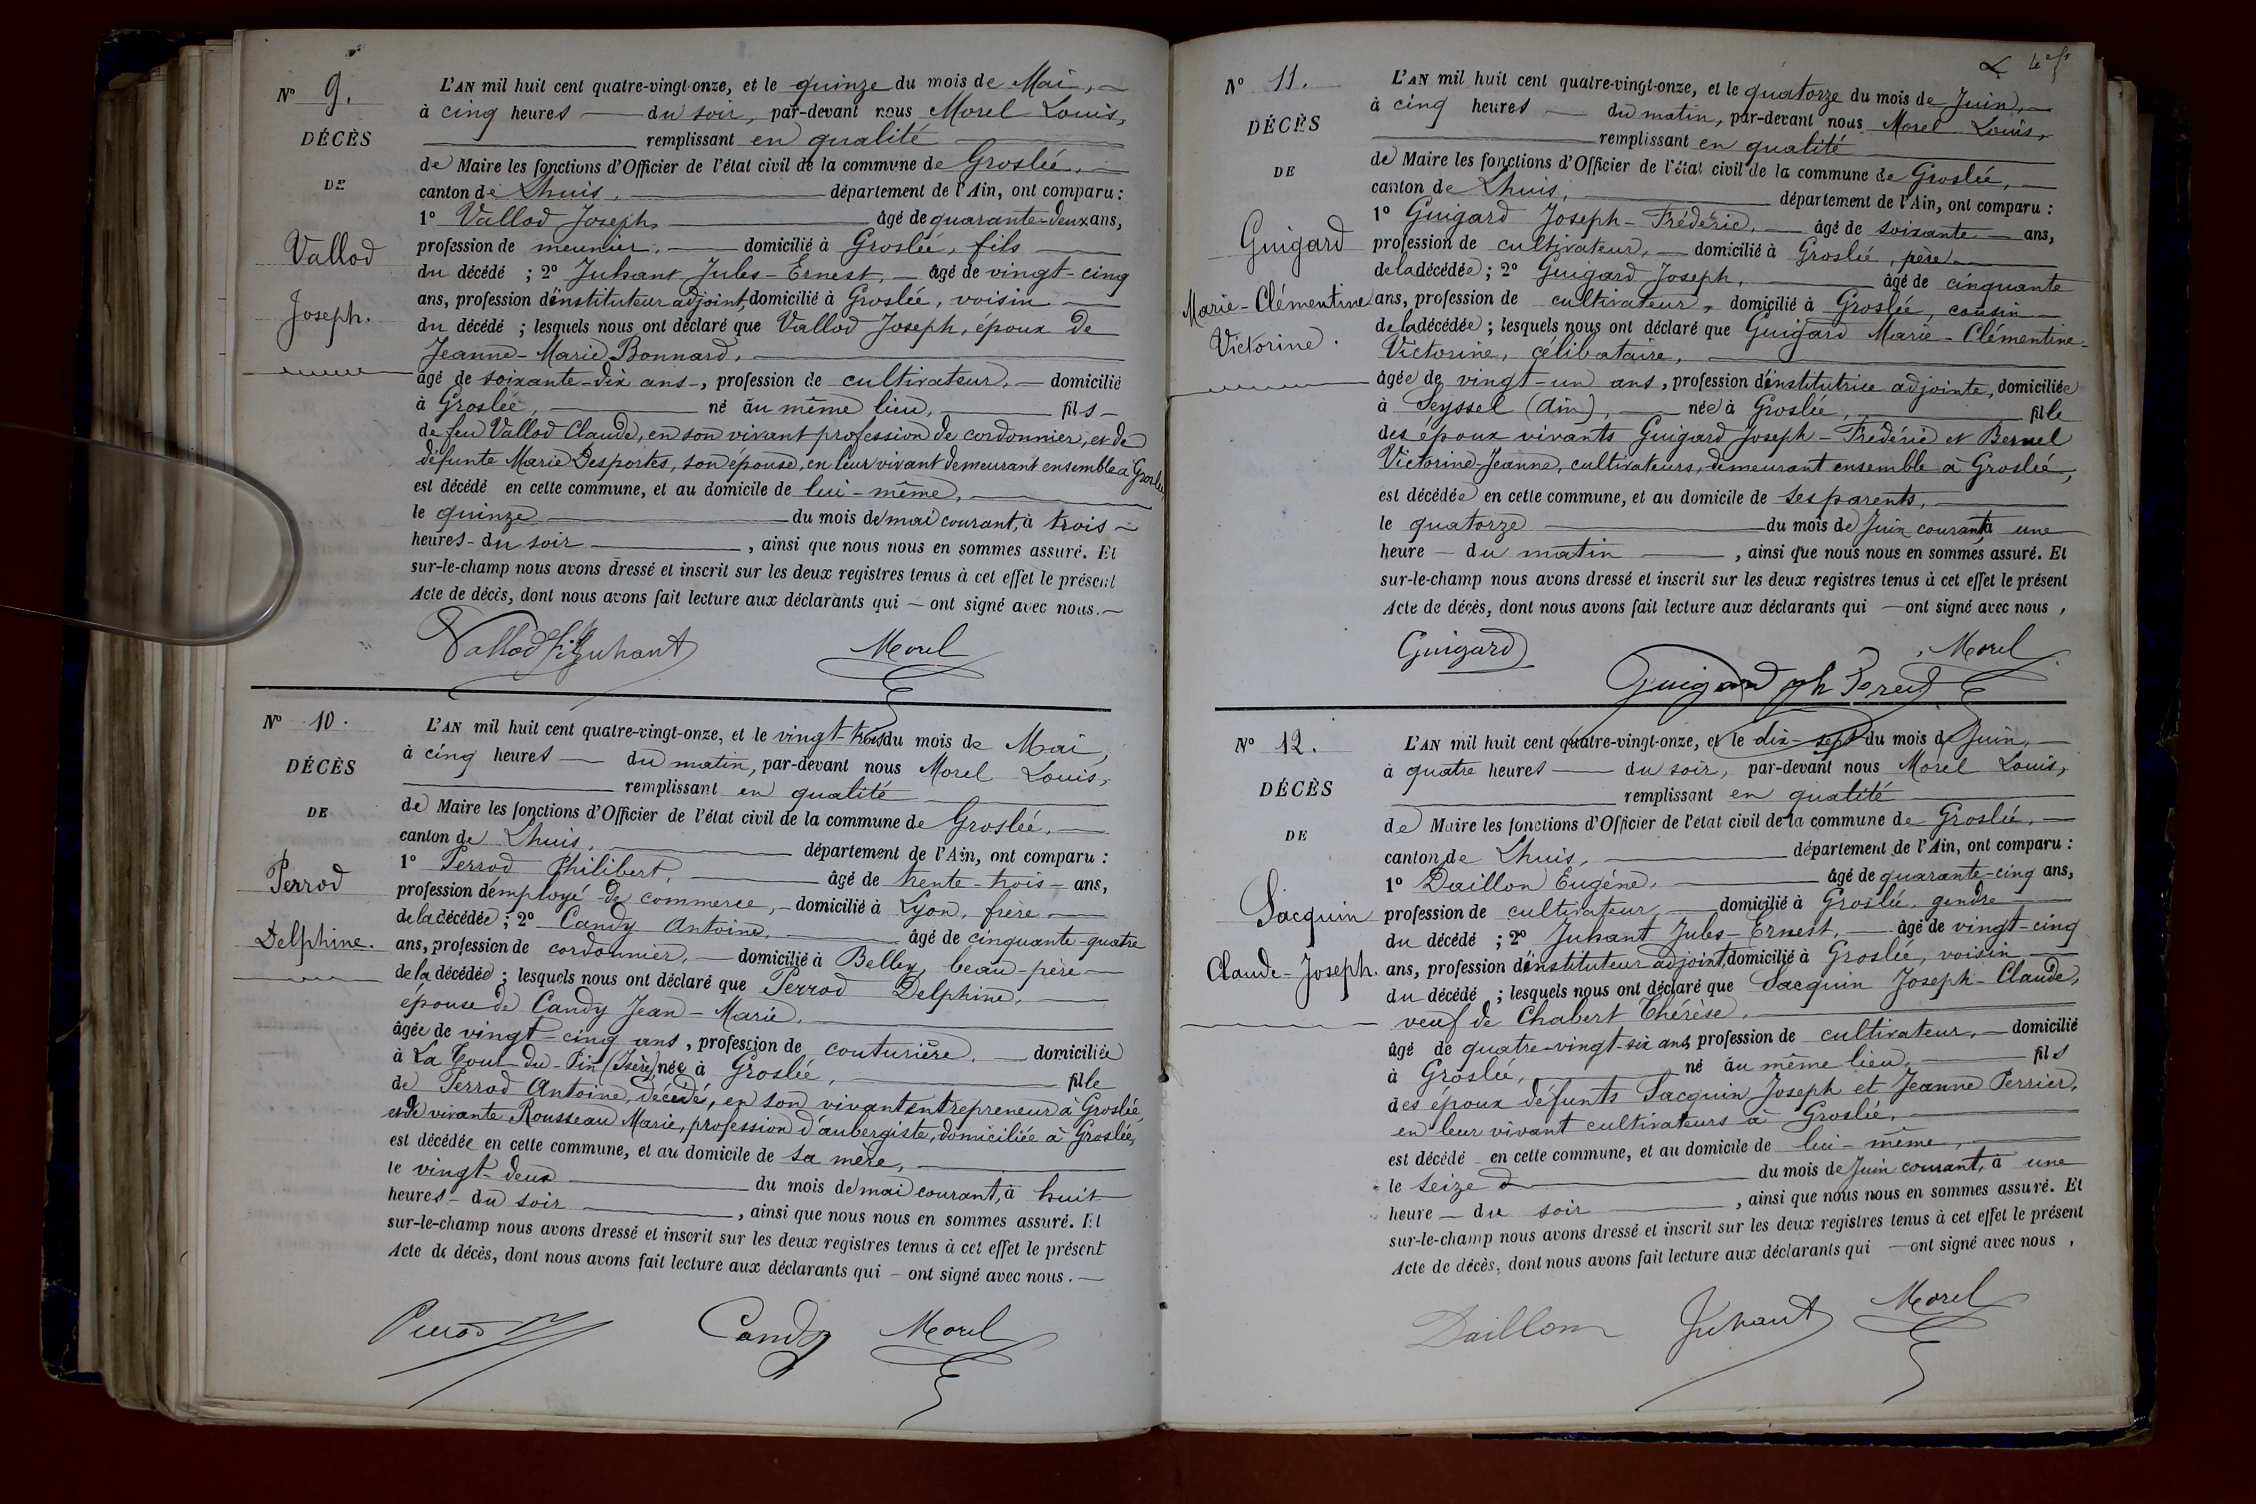 N° 9.
DÉCÈS
DE
Vallod
Joseph.
L'AN mil huit cent quatre-vingt-onze, et le quinze du mois de Mai,
à cinq heures du soir, par-devant nous Morel Louis,
remplissant en qualité
de Maire les fonctions d'Officier de l'état civil de la commune de Groslée,
canton de Lhuis, département de l'Ain, ont comparu :
1° Vallod Joseph, âgé de quarante-deux ans,
profession de meunier, domicilié à Groslée, fils
du décédé ; 2° Juhant Jules-Ernest, âgé de vingt-cinq
ans, profession d'instituteur adjoint, domicilié à Groslée, voisin
du décédé ; lesquels nous ont déclaré que Vallod Joseph, époux de
Jeanne-Marie Bonnard,
âgé de soixante-dix ans, profession de cultivateur, domicilié
à Groslée, né au même lieu, fils
de feu Vallod Claude, en son vivant profession de cordonnier, et de
défunte Marie Desportes, son épouse, en leur vivant demeurant ensemble à Groslée,
est décédé en cette commune, et au domicile de lui-même,
le quinze du mois de mai courant, à trois
heures du soir, ainsi que nous nous en sommes assuré. Et
sur-le-champ nous avons dressé et inscrit sur les deux registres tenus à cet effet le présent
Acte de décès, dont nous avons fait lecture aux déclarants qui ont signé avec nous.
Vallod fils Juhant Morel
N° 10.
DÉCÈS
DE
Perrod
Delphine.
L'AN mil huit cent quatre-vingt-onze, et le vingt-trois du mois de Mai,
à cinq heures du matin, par-devant nous Morel Louis,
remplissant en qualité
de Maire les fonctions d'Officier de l'état civil de la commune de Groslée,
canton de Lhuis, département de l'Ain, ont comparu :
1° Perrod Philibert, âgé de trente-trois ans,
profession d'employé de commerce, domicilié à Lyon, frère
de la décédée ; 2° Candy Antoine, âgé de cinquante-quatre
ans, profession de cordonnier, domicilié à Belley, beau-père
de la décédée ; lesquels nous ont déclaré que Perrod Delphine,
épouse de Candy Jean-Marie,
âgée de vingt-cinq ans, profession de couturière, domiciliée
à La Tour-du-Pin (Isère), née à Groslée, fille
de Perrod Antoine, décédé, en son vivant entrepreneur à Groslée,
et de vivante Rousseau Marie, profession d'aubergiste, domiciliée à Groslée,
est décédée en cette commune, et au domicile de sa mère,
le vingt-deux du mois de mai courant, à huit
heures du soir, ainsi que nous nous en sommes assuré. Et
sur-le-champ nous avons dressé et inscrit sur les deux registres tenus à cet effet le présent
Acte de décès, dont nous avons fait lecture aux déclarants qui ont signé avec nous.
Perrod Candy Morel
N° 11.
DÉCÈS
DE
Guigard
Marie-Clémentine
Victorine.
L'AN mil huit cent quatre-vingt-onze, et le quatorze du mois de Juin,
à cinq heures du matin, par-devant nous Morel Louis,
remplissant en qualité
de Maire les fonctions d'Officier de l'état civil de la commune de Groslée,
canton de Lhuis, département de l'Ain, ont comparu :
1° Guigard Joseph-Frédéric, âgé de soixante ans,
profession de cultivateur, domicilié à Groslée, père
de la décédée ; 2° Guigard Joseph, âgé de cinquante
ans, profession de cultivateur, domicilié à Groslée, cousin
de la décédée ; lesquels nous ont déclaré que Guigard Marie-Clémentine-
Victorine, célibataire,
âgée de vingt-un ans, profession d'institutrice adjointe, domiciliée
à Seyssel (Ain), née à Groslée, fille
des époux vivants Guigard Joseph-Frédéric et Bernel
Victorine-Jeanne, cultivateurs, demeurant ensemble à Groslée,
est décédée en cette commune, et au domicile de ses parents,
le quatorze du mois de Juin courant, à une
heure du matin, ainsi que nous nous en sommes assuré. Et
sur-le-champ nous avons dressé et inscrit sur les deux registres tenus à cet effet le présent
Acte de décès, dont nous avons fait lecture aux déclarants qui ont signé avec nous,
Guigard Morel
Guigard
N° 12.
DÉCÈS
DE
Sacquin
Claude-Joseph.
L'AN mil huit cent quatre-vingt-onze, et le dix-sept du mois de Juin,
à quatre heures du soir, par-devant nous Morel Louis,
remplissant en qualité
de Maire les fonctions d'Officier de l'état civil de la commune de Groslée,
canton de Lhuis, département de l'Ain, ont comparu :
1° Daillon Eugène, âgé de quarante-cinq ans,
profession de cultivateur, domicilié à Groslée, gendre
du décédé ; 2° Juhant Jules-Ernest, âgé de vingt-cinq
ans, profession d'instituteur adjoint, domicilié à Groslée, voisin
du décédé ; lesquels nous ont déclaré que Sacquin Joseph-Claude,
veuf de Chabert Thérèse,
âgé de quatre-vingt-six ans, profession de cultivateur, domicilié
à Groslée, né au même lieu, fils
des époux défunts Sacquin Joseph et Jeanne Perrier,
en leur vivant cultivateurs à Groslée,
est décédé en cette commune, et au domicile de lui-même,
le seize du mois de Juin courant, à une
heure du soir, ainsi que nous nous en sommes assuré. Et
sur-le-champ nous avons dressé et inscrit sur les deux registres tenus à cet effet le présent
Acte de décès, dont nous avons fait lecture aux déclarants qui ont signé avec nous,
Daillon Juhant Morel